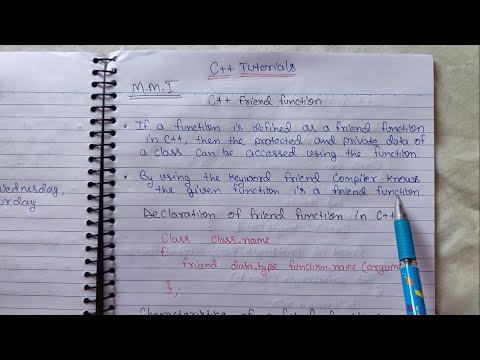 C++ Tutorials
M.M.I
C++ friend function
• If a function is defined as a friend function
in C++, then the protected and private data of
a class can be accessed using the function.
• By using the keyword friend Compiler knows
the given function is a friend function.
Declaration of friend function in C++
Class class-name
{
friend data-type function-name (argum
};
Wednesday,